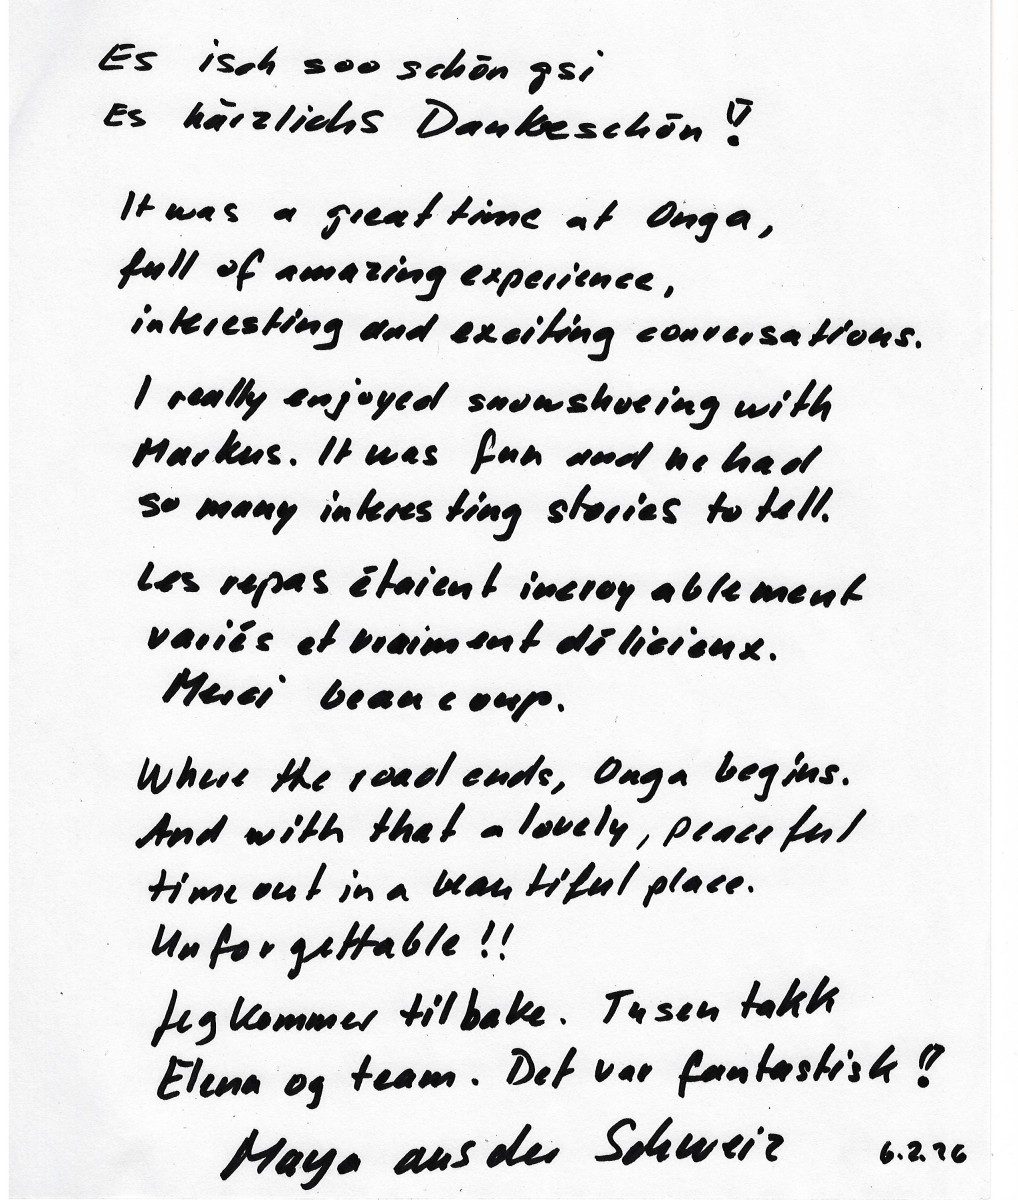 Es isch soo schön gsi
Es härzlichs Dankeschön!
It was a great time at Onga,
full of amazing experience,
interesting and exciting conversations.
I really enjoyed snowshoeing with
Markus. It was fun and he had
so many interesting stories to tell.
Les repas étaient incroyablement
variés et vraiment délicieux.
Merci beaucoup.
Where the road ends, Onga begins.
And with that a lovely, peaceful
time out in a beautiful place.
Unforgettable!!
Jeg kommer tilbake. Tusen takk
Elena og team. Det var fantastisk!
Maya aus der Schweiz 6.2.26